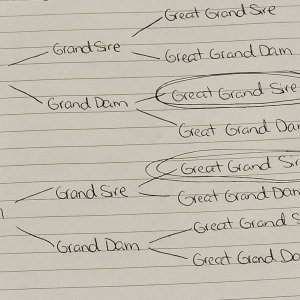 Great Grand Sire
Grand Sire
Great Grand Dam
Great Grand Sire
Grand Dam
Great Grand Dam
Great Grand Sir
Grand Sire
Great Grand Dam
Great Grand S
Grand Dam
Great Grand Da